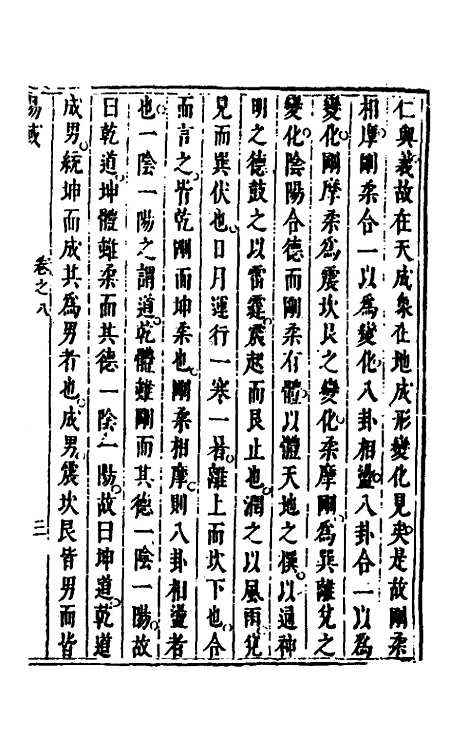 仁與義故在天成象在地成形變化見矣是故剛柔
相摩剛柔合一以爲變化八卦相盪八卦合一以爲
變化剛摩柔爲震坎艮之變化柔摩剛爲巽離兌之
變化陰陽合德而剛柔有體以體天地之撰以通神
明之德鼓之以雷霆震起而艮止也潤之以風雨兌
見而巽伏也日月運行一寒一暑離上而坎下也合
而言之皆乾剛而坤柔也剛柔相摩則八卦相盪者
也一陰一陽之謂道乾體雖剛而其德一陰一陽故
曰乾道坤體雖柔而其德一陰一陽故曰坤道乾道
成男統坤而成其爲男者也成男震坎艮皆男而皆
卷之八
三